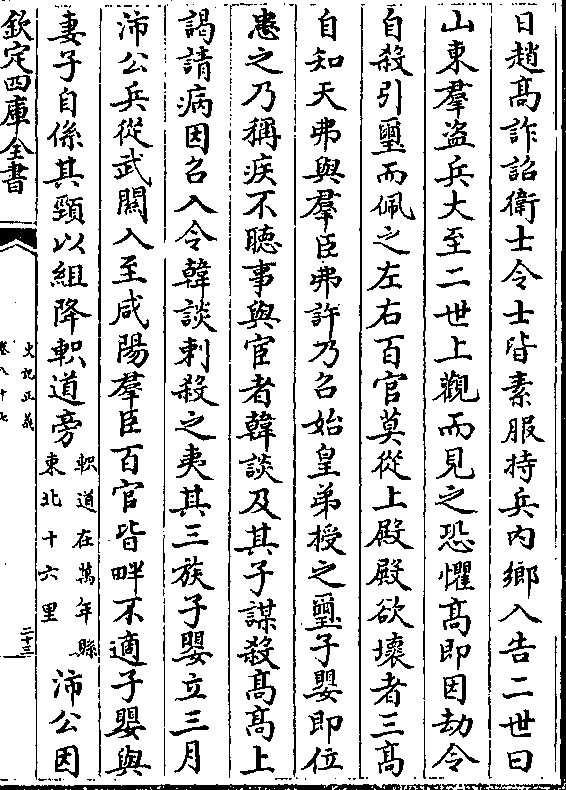 日趙髙詐詔衛士令士皆素服持兵内鄉入告二世曰
山東羣盜兵大至二世上觀而見之恐懼髙即因劫令
自殺引璽而佩之左右百官莫從上殿殿欲壊者三髙
自知天弗與羣臣弗許乃召始皇弟授之璽子嬰即位
患之乃稱疾不聽事與宦者韓談及其子謀殺髙髙上
謁請病因召入令韓談刺殺之夷其三族子嬰立三月
沛公兵從武關入至咸陽羣臣百官皆畔不適子嬰與
妻子自係其頸以組降軹道旁
軹道在萬年縣
東北十六里
沛公因
欽定四庫全書
史記正義
卷八十七
二十三